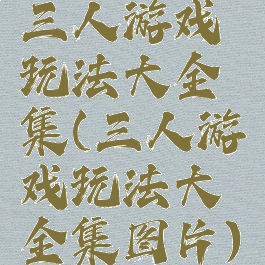 三人游戏
玩法大全
集(三人游
戏玩法大
全集图片)